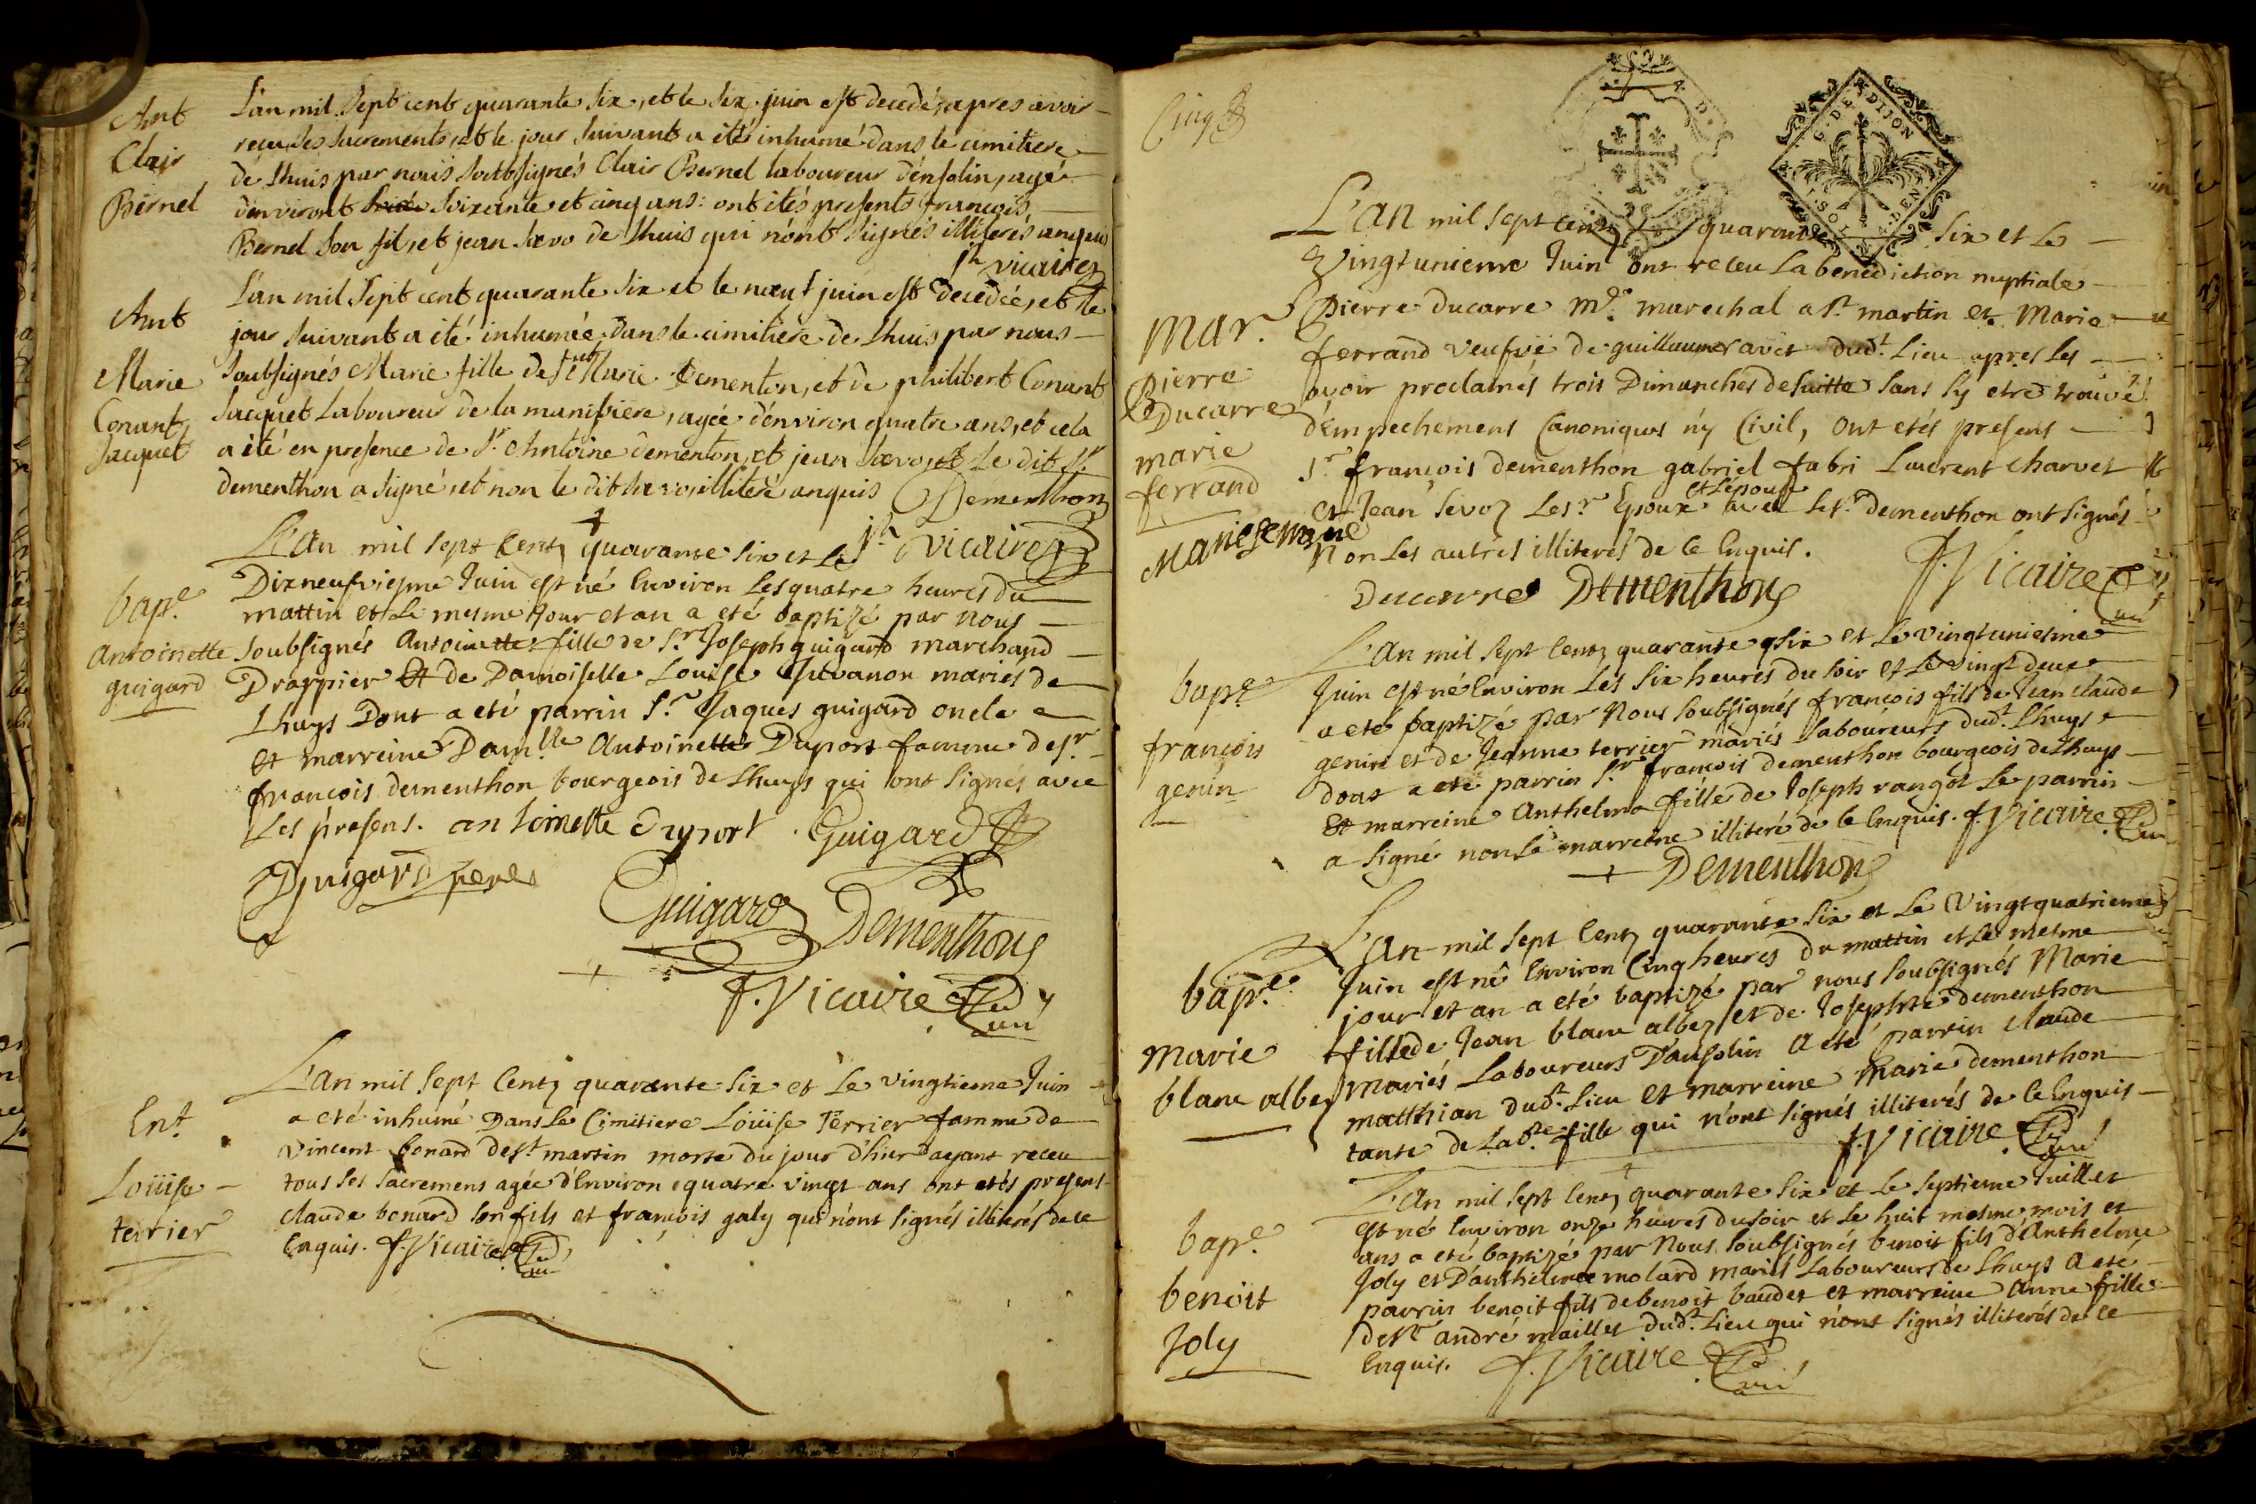 Ant
Clair
Bernel
L'an mil sept cent quarante six, et le six juin est decedé, apres avoir
reçu, ses sacrements, et le jour suivant a été inhumé dans le cimitiere
de Lhuis par nous soubsignés Clair Bernel laboureur d'ensolin, agé
d'environt soixante et cinq ans: ont étés presents françois
Bernel son fils, et jean sevo de Lhuis qui n'ont signés illiterés anquis
vicaire
Ant
Marie
Conant
Jacquet
L'an mil sept cent quarante six et le neuf juin est decedée, et le
jour suivant a été inhumée dans le cimitiere de Lhuis par nous
soubsignés Marie fille de Marie Dementon, et de philibert Conant
Jacquet Laboureur de la manifiere, agée d'environ quatre ans, et cela
a été en presence de Sr. Antoine dementon, et jean sevo, et le dit Sr.
dementhon a signé, et non le dit sevo, illiteré anquis Dementhon
vicaire
bapt.e
antoinette
guigard
L'an mil sept centz quarante six et le
Dixneufviesme Juin est né Environ les quatre heures du
mattin et le mesme jour et an a eté baptizé par nous
soubsignés antoinette fille de Sr. Joseph guigard marchand
Drappier et de Damoiselle Louise mariés de
Lhuys Dont a eté parrin Sr. Jaques guigard oncle
et marreine Dam.lle Antoinette Duport famme de Sr.
françois dementhon bourgeois de Lhuys qui ont signés avec
Les presens. antoinette duport Guigard
Guigard pere
Guigard Dementhon
f. Vicaire Curé
Ent.
Loüise
terrier
L'an mil sept centz quarante six et le vingtieme Juin
a eté inhumé Dans Le Cimitiere Loüise Terrier famme de
Vincent bonard de st martin morte du jour d'hier ayant receu
tous ses sacremens agée d'Environ quatre vingt ans ont etés presens
Claude bonard son fils et françois galy qui n'ont signés illiterés de ce
Enquis. f. Vicaire Curé
Cinq
G. DE DIJON
Mar.
Pierre
Ducarre
marie
ferrand
L'an mil sept centz quarante six et le
Vingtunieme Juin ont receu La benediction nuptiale
Pierre Ducarre M.e marechal a st. martin et Marie
ferrand veufve de guillaume ravet dud.t Lieu apres les
avoir proclamés trois Dimanches desuitte sans s'y etre trouvé
d'Empechemens Canoniques n'y Civil, ont etés presens
Sr. françois dementhon gabriel fabri Laurent charvet
et Jean sevoz Les.r Epoux et l'epouse avec le Sr dementhon ont signés
Non Les autres illiterés de ce Enquis.
Ducarre Dementhon f. Vicaire Curé
bapt.e
françois
genin
L'an mil sept centz quarante six et le vingtuniesme
Juin est né Environ les six heures du soir et le vingt deux
a eté baptizé par nous soubsignés françois fils de Jean Claude
genin et de Jeanne terrier mariés Laboureurs dud.t Lhuys
dont a eté parrin Sr. françois dementhon bourgeois de Lhuys
et marreine Anthelma fille de Joseph rangot Le parrin
a signé non la marreine illiteré de ce Enquis. f. Vicaire Curé
Dementhon
bapt.e
Marie
blanc albez
L'an mil sept centz quarante six et le Vingtquatrieme
Juin est né Environ Cinq heures du mattin et le mesme
jour et an a eté baptizé par nous soubsignés Marie
fille de Jean blanc albez et de Josephte dementhon
mariés Laboureurs D'ansolin a eté parrin claude
matthian dud.t Lieu et marreine Marie dementhon
tante de Lad.te fille qui n'ont signés illiterés de ce Enquis
f. Vicaire Curé
bapt.e
benoit
Joly
L'an mil sept centz quarante six et le septieme Juillet
est né Environ onze heures du soir et le huit mesme mois et
ans a eté baptizé par nous soubsignés benoit fils d'Anthelme
Joly et D'anthelmee molard mariés Laboureurs de Lhuys a eté
parrin benoit fils de benoit baudet et marreine anne fille
de Sr. andré maillet dud.t Lieu qui n'ont signés illiterés de ce
Enquis. f. Vicaire Curé